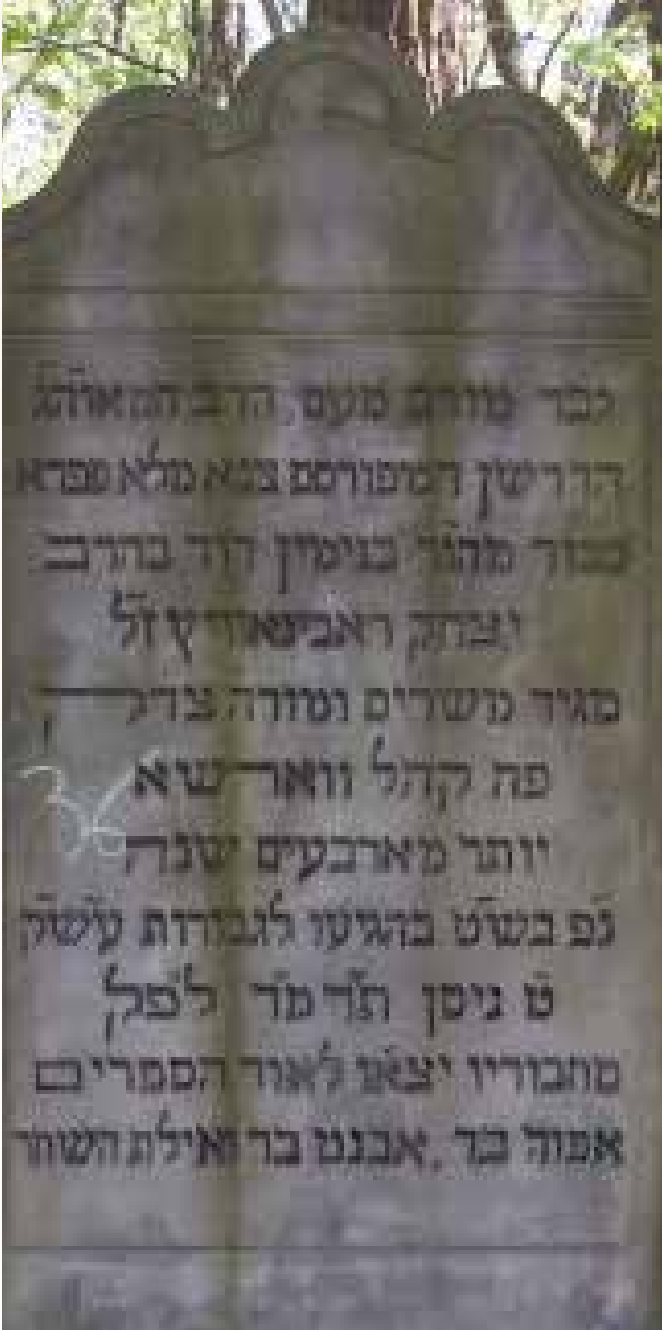 לבד מורם מעם הרב המאוהג
הדרשן המפורסם צנא מלא ספרא
כבוד מהור בנימין דוד בהרב
יצחק ראבינאוויץ זל
מגיד משרים ומורה צדק
פה קהל ווארשא
יותר מארבעים שנה
נפ בשוט בהגיעו לגבורות עשק
ט ניסן תרמד לפק
מחבוריו יצאו לאור הספרים
אפוד בד, אבנט בד ואילת השחר
36